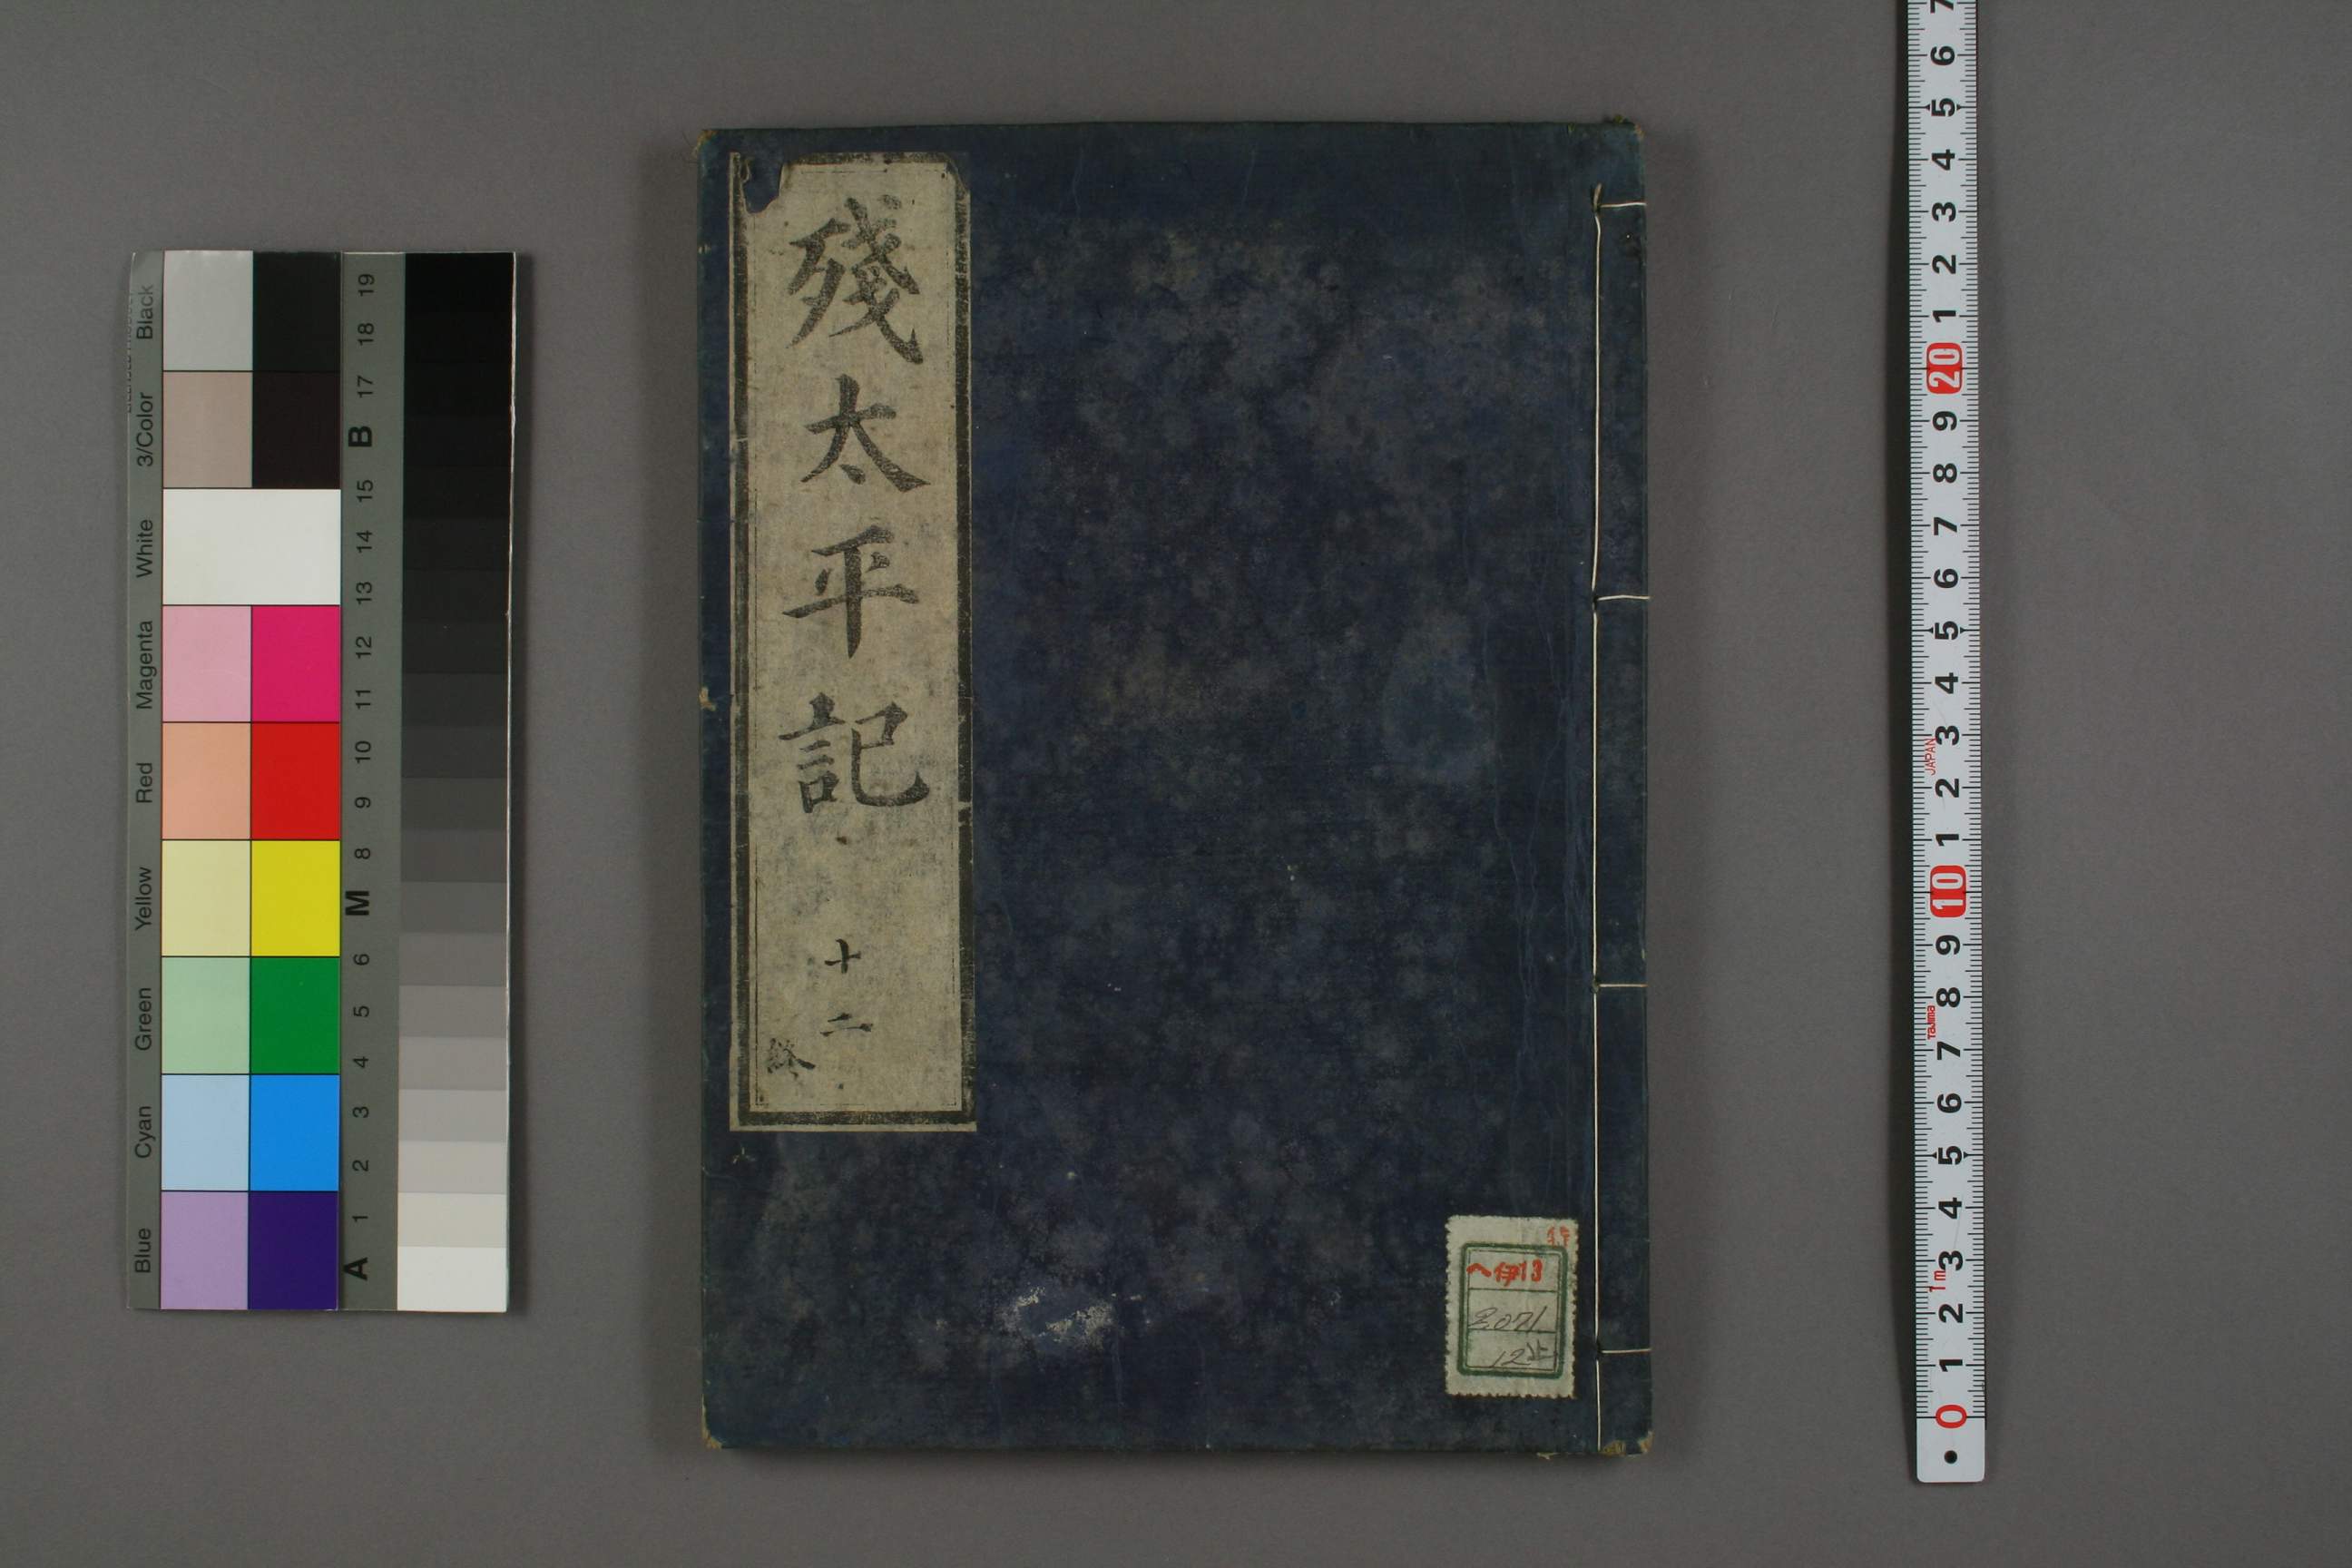 殘太平記
十二
終
特
ヘ伊13
2071
12止
Black
3/Color
White
Magenta
Red
Yellow
Green
Cyan
Blue
19
18
17
B
15
14
13
12
11
10
9
8
M
6
5
4
3
2
1
A
7
6
5
4
3
2
1
20
9
8
7
6
5
4
3
JAPAN
2
1
10
9
8
Tajima
7
6
5
4
3
1m
2
1
0